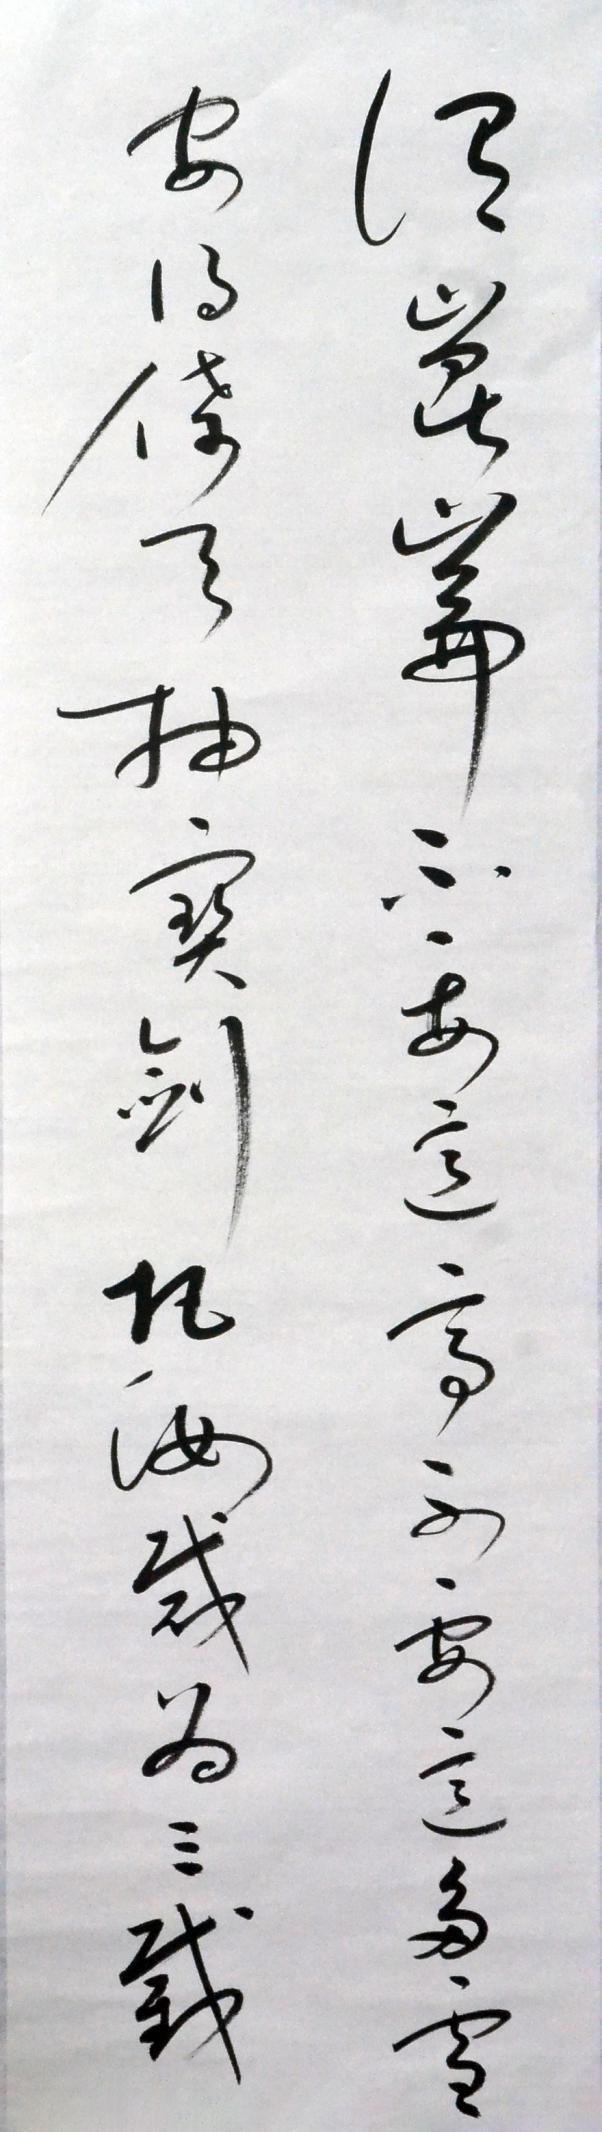 谓崑崙不要这高不要这多雪
安得倚天抽宝剑把汝裁为三截